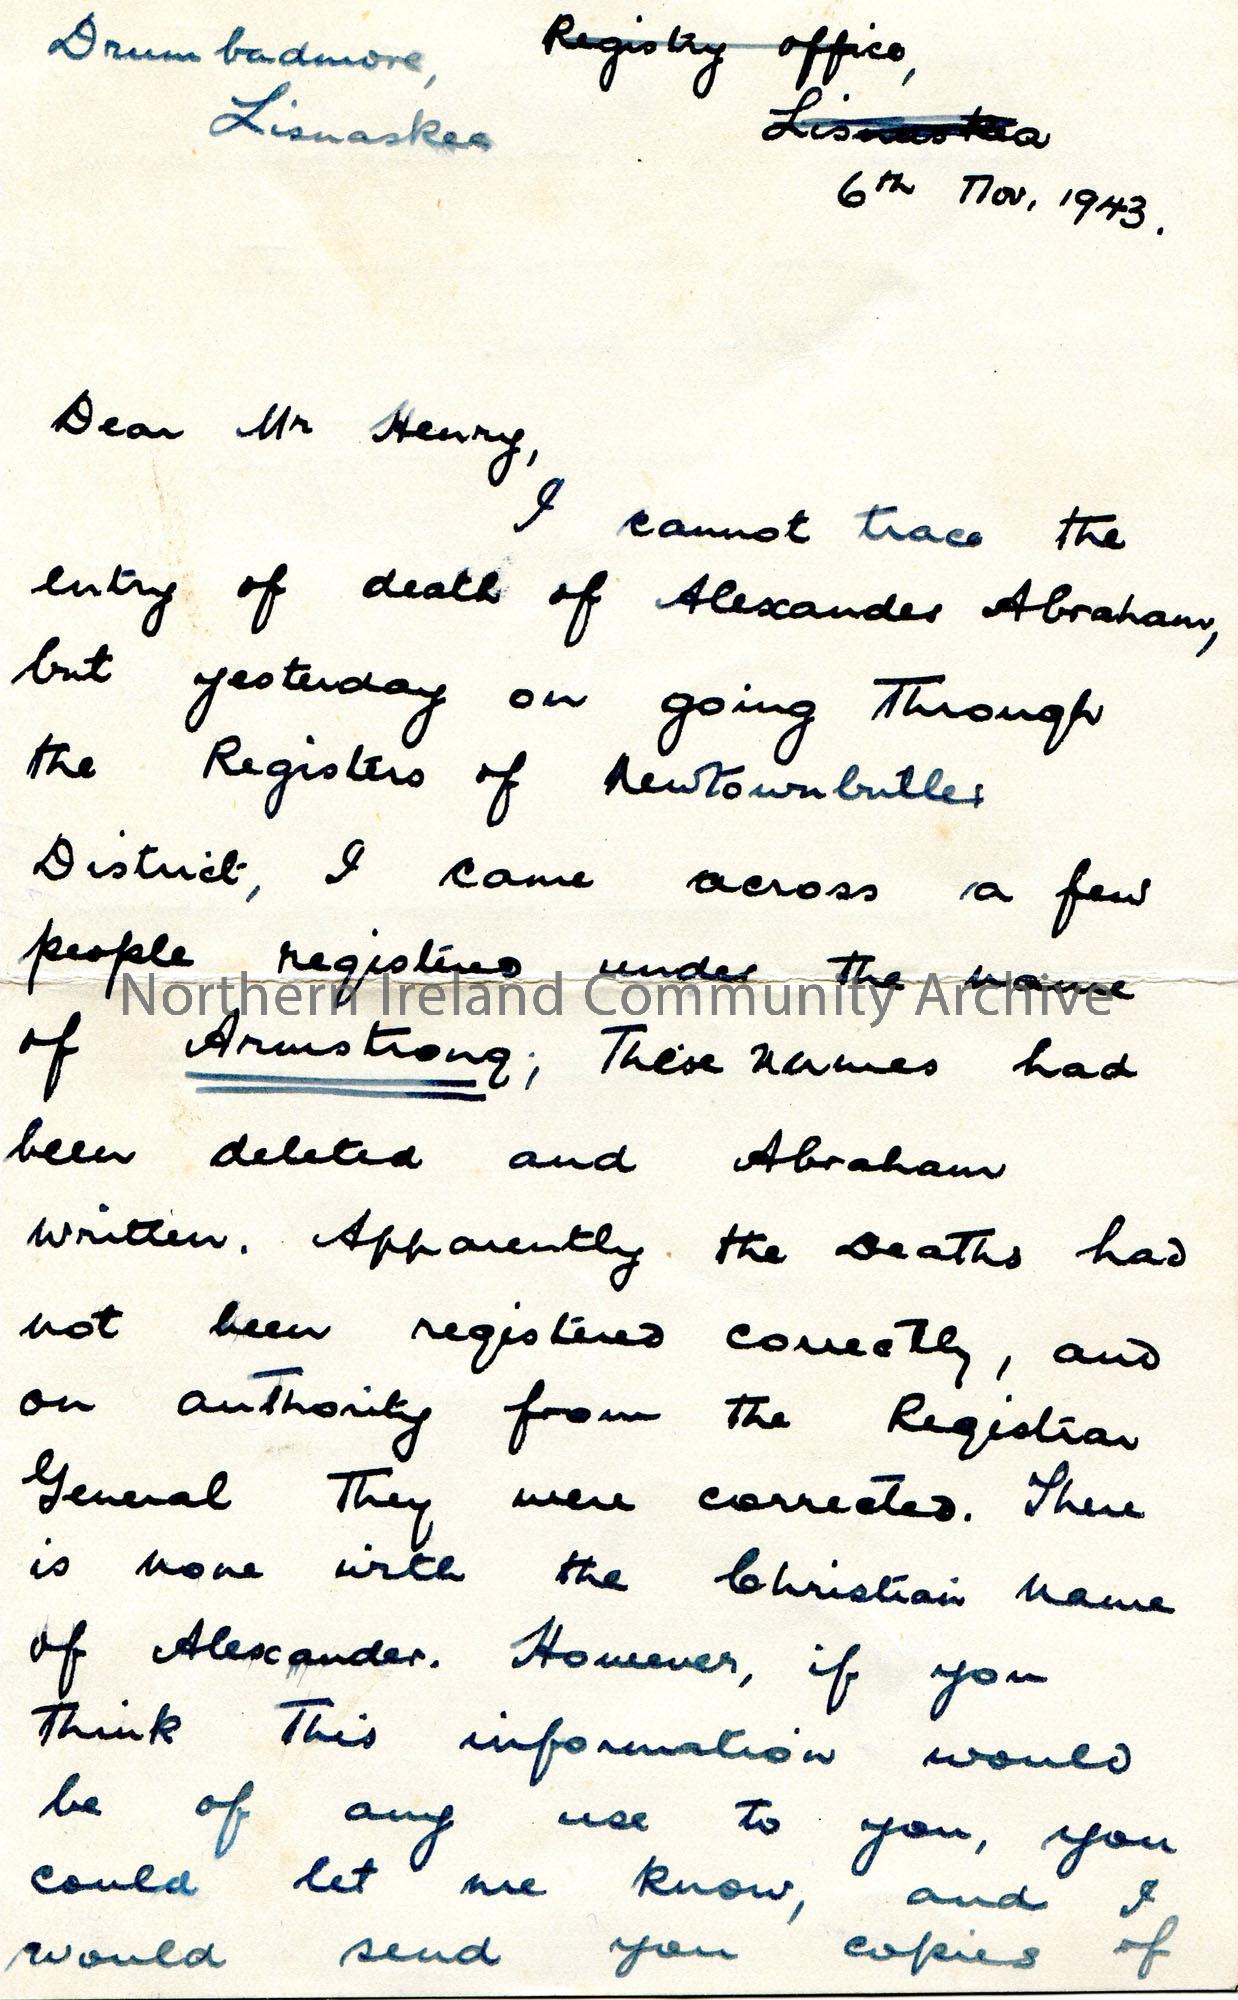 Drumbadmore,
Lisnaskea
Registry office,
Lisnaskea
6th Nov. 1943.
Dear Mr Henry,
I cannot trace the
entry of death of Alexander Abraham,
but yesterday on going through
the Registers of Newtownbutler
District, I came across a few
people registered under the name
Northern Ireland Community Archive
of Armstrong; These names had
been deleted and Abraham
written. Apparently the Deaths had
not been registered correctly, and
on authority from the Registrar
General they were corrected. There
is none with the Christian name
of Alexander. However, if you
think this information would
be of any use to you, you
could let me know, and I
would send you copies of